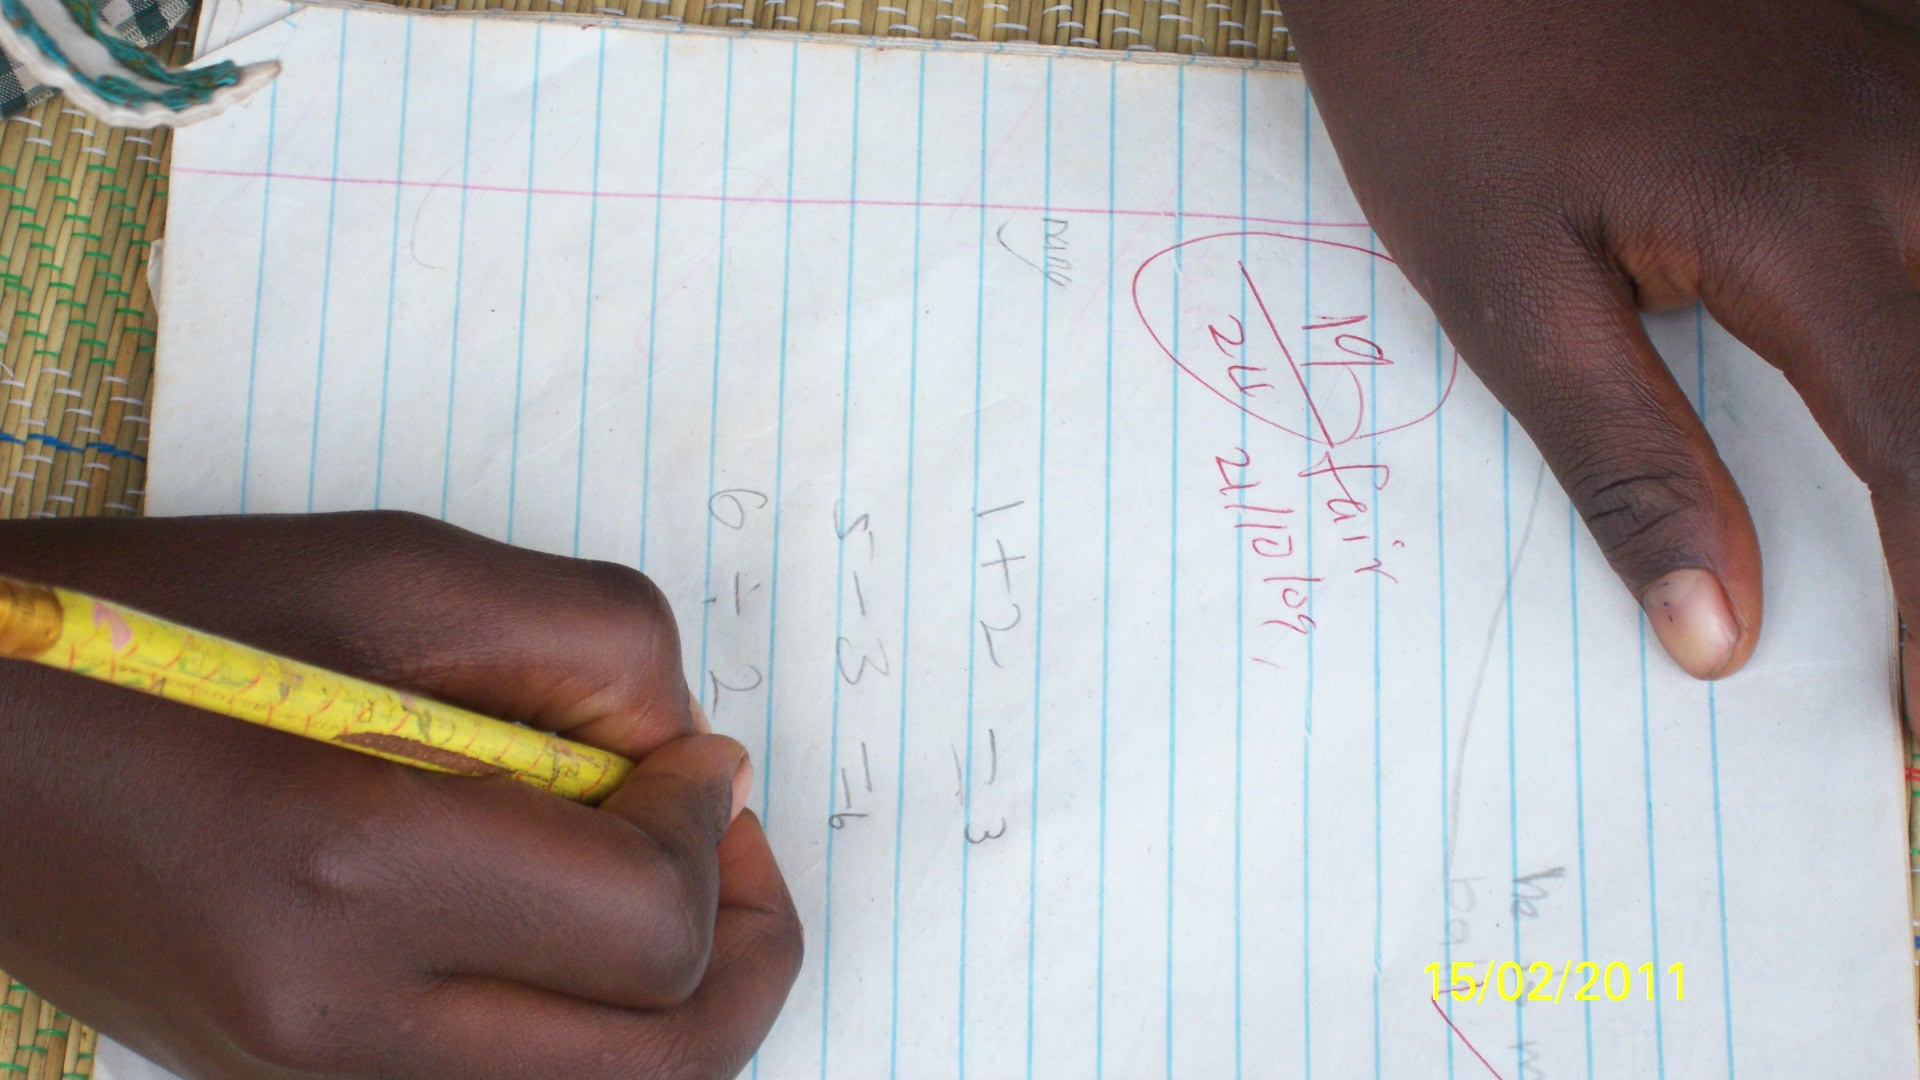 19
24
fair
21/10/09
1 + 2 = 3
5 - 3 = 6
6 ÷ 2
15/02/2011